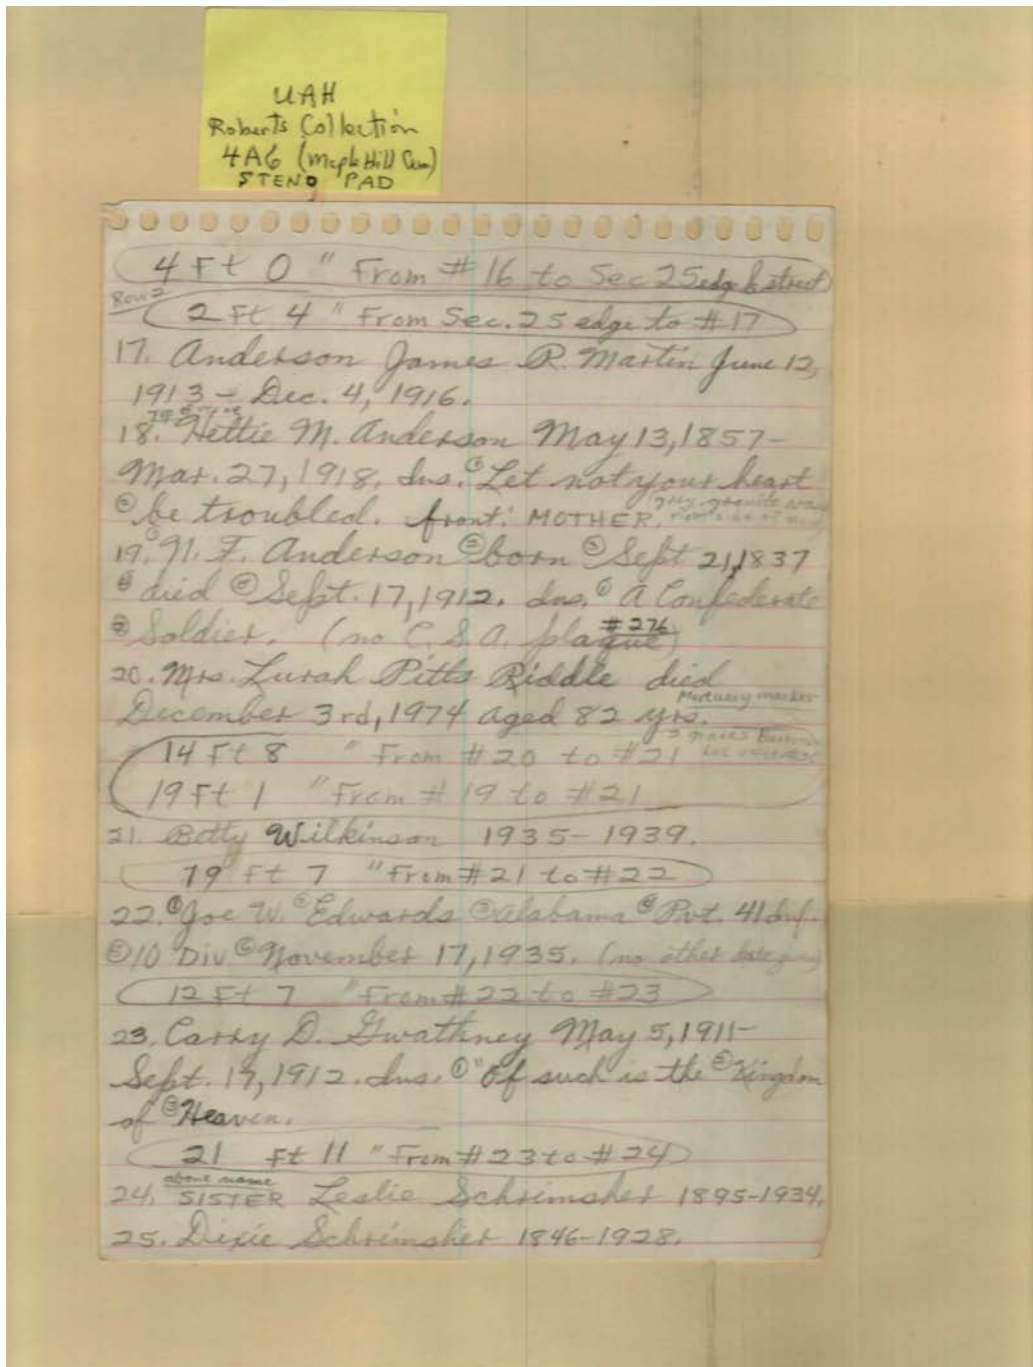 UAH
Roberts Collection
4A6 (Maple Hill Cem)
STENO PAD
4 Ft 0 " From # 16 to Sec 25 edge & street
Row 2
2 Ft 4 " From Sec. 25 edge to #17
17. Anderson James R. Martin June 12,
1913 - Dec. 4, 1916.
18. Hettie M. Anderson May 13, 1857-
Mar. 27, 1918. Ins. ① Let not your heart
② be troubled. front: MOTHER.
grey granite
19. ① N. F. Anderson ② born ③ Sept 21, 1837
④ died ⑤ Sept. 17, 1912. Ins. ① A Confederate
② Soldier. (no C.S.A. plaque) #276
20. Mrs. Lurah Pitts Riddle died
Mortuary marker
December 3rd, 1974 aged 82 yrs.
14 Ft 8 " From #20 to #21
19 Ft 1 " From # 19 to #21
21. Betty Wilkinson 1935-1939.
19 Ft 7 " From #21 to #22
22. ① Joe W. ② Edwards ③ Alabama ④ Pvt. 41 Inf.
⑤ 10 Div ⑥ November 17, 1935. (no other date given)
12 Ft 7 " From #22 to #23
23. Carry D. Gwathney May 5, 1911-
Sept. 19, 1912. Ins. ① "Of such is the ② Kingdom
of ③ Heaven.
21 Ft 11 " From #23 to #24
above name
24. SISTER Leslie Schrimsher 1895-1934.
25. Dixie Schrimsher 1846-1928.